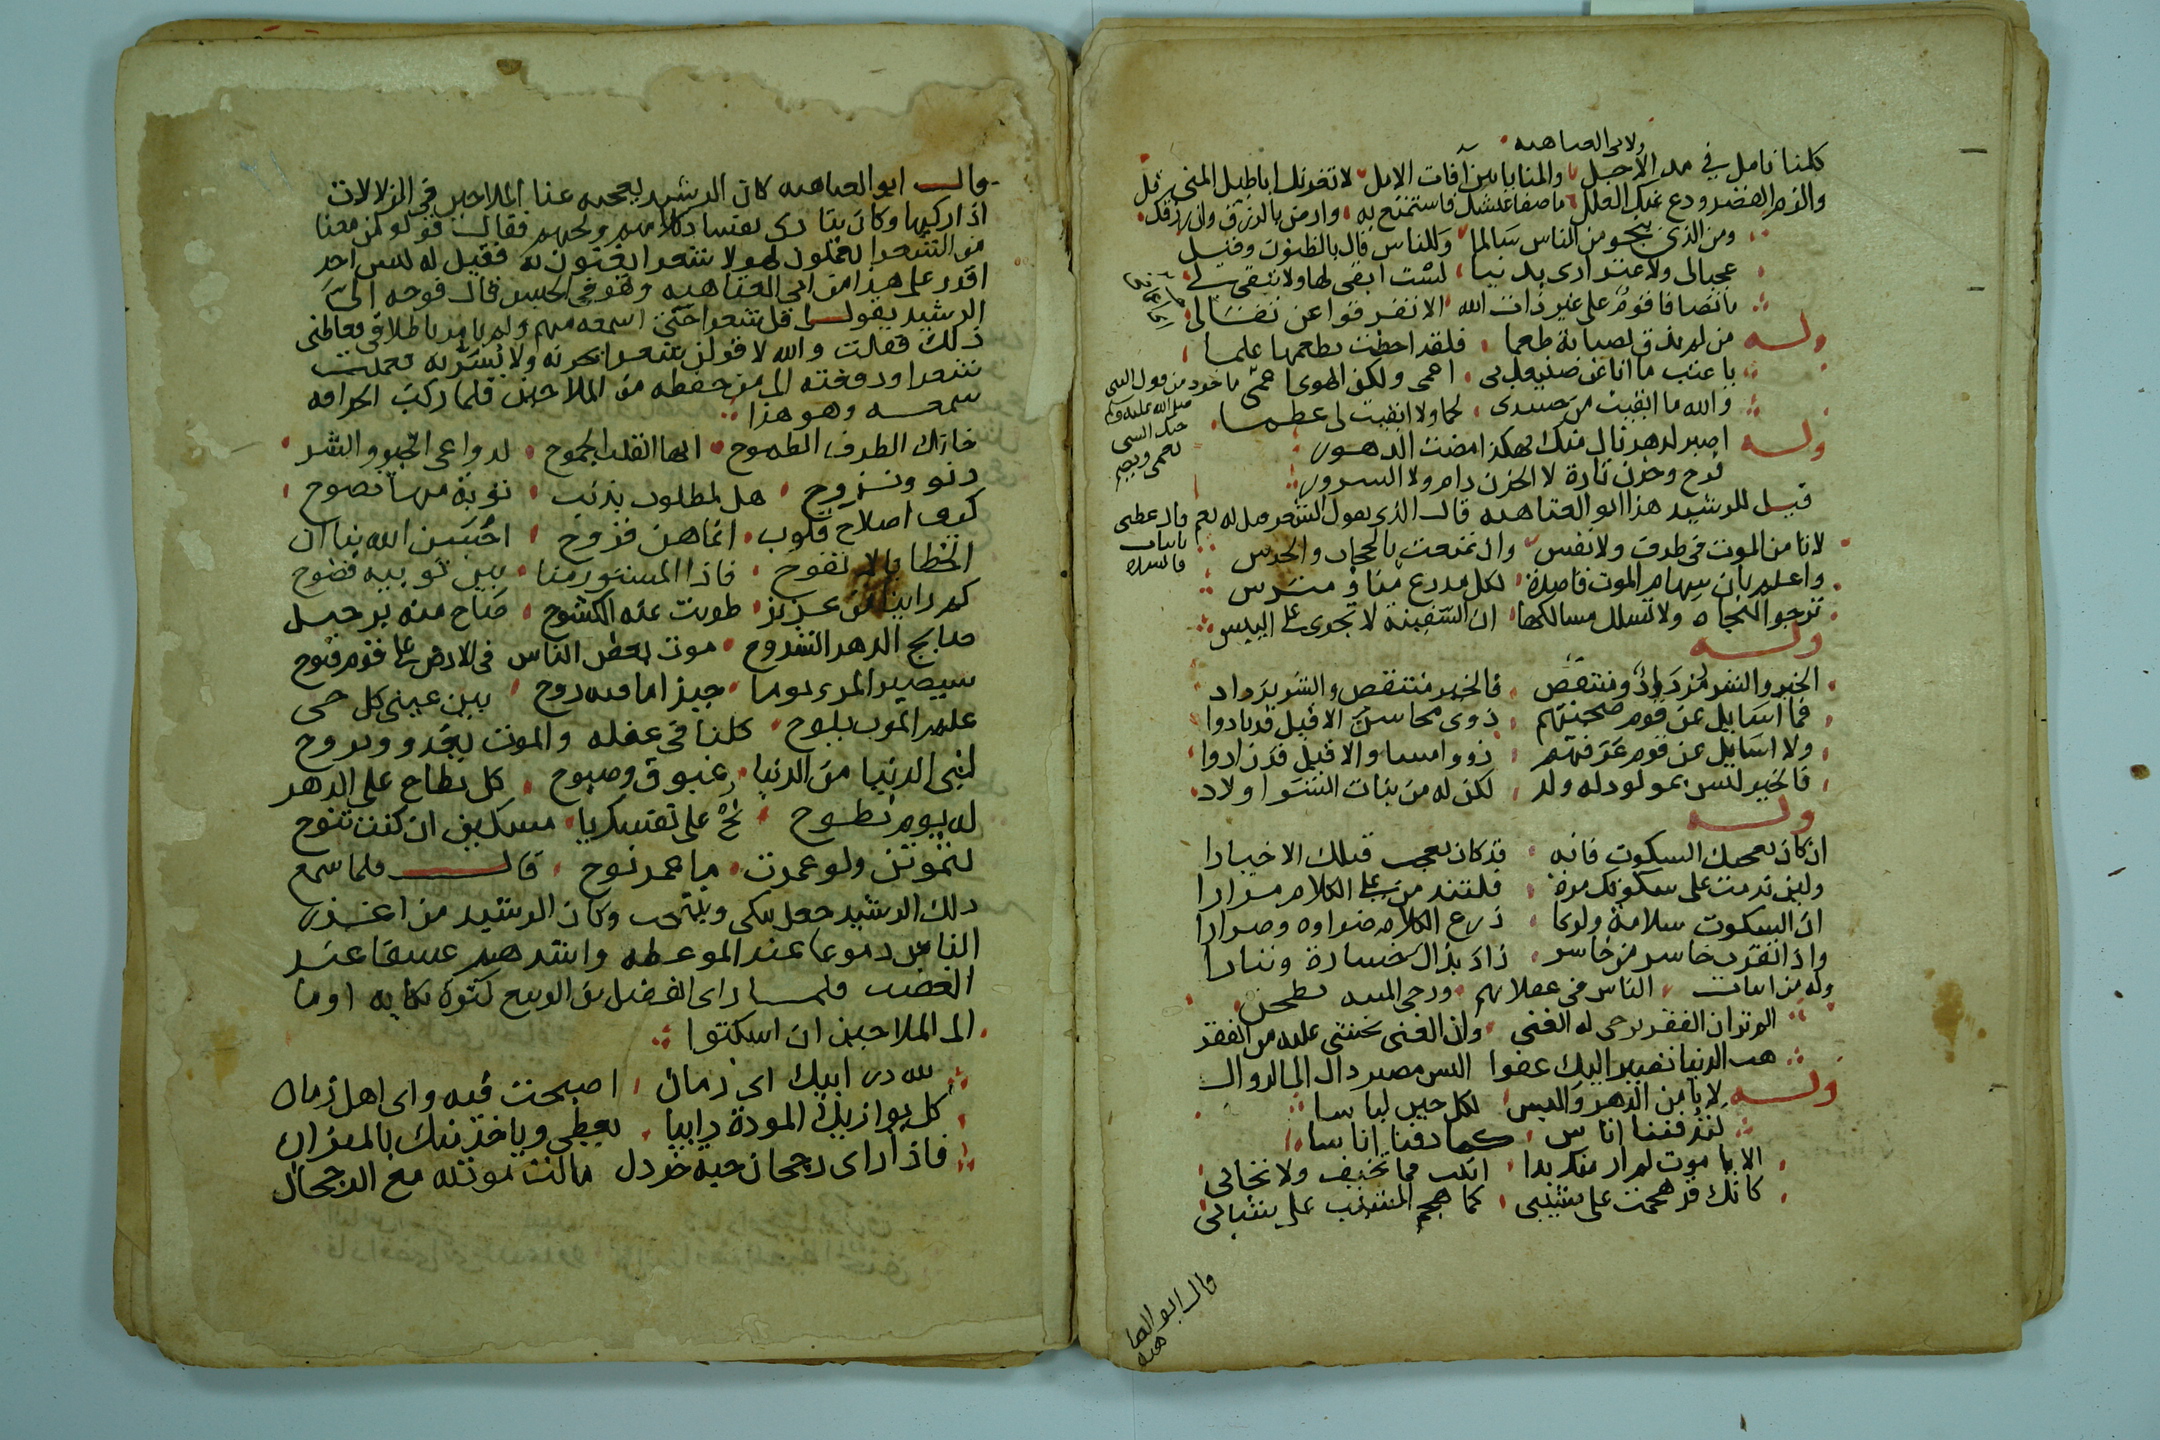 ولابى العتاهيه
كلنا نامل في مد الاجل والمنايا من آفات الامل لا تغرنك اباطيل المنى
والزم القصد ودع عنك العلل ما صفا عيشك فاستمتع به وارض بالرزق وان
ومن الذى ينجو من الناس سالما وللناس قال بالظنون وقيل
عجبا لى ولا عتد ارى بدنيا لست ابقى لها ولا تبقى لى
ما تصافا قوم على غير ذات الله الا تفرقوا عن تقالى
وله من لم يذق لصبابة طعما فلقد احطت بطعمها علما
يا عتب ما انا عن صنيعك بى اعمى ولكن الهوى اعمى
ماخوذ من قول النبى صلى الله عليه وسلم حبك الشى يعمى ويصم
والله ما ابقيت من جسدى لحما ولا ابقيت لى عظما
وله اصبر لدهر نال منك فهكذا مضت الدهور
فرح وحزن تارة لا الحزن دام ولا السرور
قيل للرشيد هذا ابو العتاهيه قال الذى يقول الشعر قيل له نعم قال عظنى بابيات فانشده
لا تامن الموت فى طرف ولا نفس وان تمنعت بالحجاب والحرس
واعلم بان سهام الموت قاصدة لكل مدرع منا ومترس
ترجو النجاه ولا تسلك مسالكها ان السفينه لا تجرى على اليبس
وله
الخير والشر مزداد ومنتقص فالخير منتقص والشر يزداد
فما اسايل عن قوم صحبتهم ذوى محاسن الا قيل قد بادوا
ولا اسايل عن قوم عرفتهم ذووا اسا والا قيل قد زادوا
فالخير ليس بمولود له ولد لكن له من بنات الشر اولاد
وله
ان كان يعجبك السكوت فانه قد كان يعجب قبلك الاخيارا
ولين ندمت على سكوتك مرة فلتندمن على الكلام مرارا
ان السكوت سلامة ولربما زرع الكلام عداوه وضرارا
واذا تقرب خاسر من خاسر زادا بذاك خسارة وتبارا
وله من ابيات الناس فى غفلاتهم ورحى المنيه تطحن
الم تر ان الفقر يرجى له الغنى وان الغنى يخشى عليه من الفقر
هب الدنيا تصير اليك عفوا اليس مصير ذاك الى الزوال
وله لا يامن الدهر والبس لكل حين لباسا
لتدفننا اناس كما دفنا اناسا
الا يا موت لم ار منك بدا اتيت فما تحيف ولا تحابى
كانك قد هجمت على مشيبى كما هجم المشيب على شبابى
قال ابو العتاهيه
قال ابو العتاهيه كان الرشيد يعجبه غنا الملاحين فى الزلالات
اذا ركبها وكان يتاذى بفساد كلامهم ولحنهم فقال قولو لمن معنا
من الشعرا يعملون لهولا شعرا يغنون به فقيل له ليس احد
اقدر على هذا من ابى العتاهيه وهو فى الحبس قال فوجه الى
الرشيد يقول قل شعرا حتى اسمعه منهم ولم يامر باطلاقى فغاظنى
ذلك فقلت والله لا قولن شعرا يحزنه ولا يسر به فعملت
شعرا ودفعته الى من حفظه من الملاحين فلما ركب الحراقه
سمعه وهو هذا
خانك الطرف الطموح ايها القلب الجموح لدواعى الخير والشر
دنو ونزوح هل لمطلوب بذنب توبة منه نصوح
كيف اصلاح قلوب انما هن قروح احسن الله بنا ان
الخطايا لا تفوح فاذا المستور منا بين ثوبيه فضوح
كم راينا من عزيز طويت عنه الكشوح صاح منه برحيل
صايح الدهر الصدوح موت بعض الناس فى الارض على قوم فتوح
سيصير المرء يوما جسدا ما فيه روح بين عينى كل حى
علم الموت يلوح كلنا فى غفله والموت يغدو ويروح
لبنى الدنيا من الدنيا غبوق وصبوح كل نطاح على الدهر
له يوم نطوح نح على نفسك يا مسكين ان كنت تنوح
لتموتن ولو عمرت ما عمر نوح قال فلما سمع
ذلك الرشيد جعل يبكى وينتحب وكان الرشيد من اغزر
الناس دموعا عند الموعظه واشدهم عسفا عند
الغضب فلما راى الفضل بن الربيع كثرة بكايه اوما
الى الملاحين ان اسكتوا
لله در ابيك اى زمان اصبحت فيه واى اهل زمان
كل يوازيك المودة دايبا يعطى وياخذ منك بالميزان
فاذا راى رجحان حبة خردل مالت مودته مع الرجحان